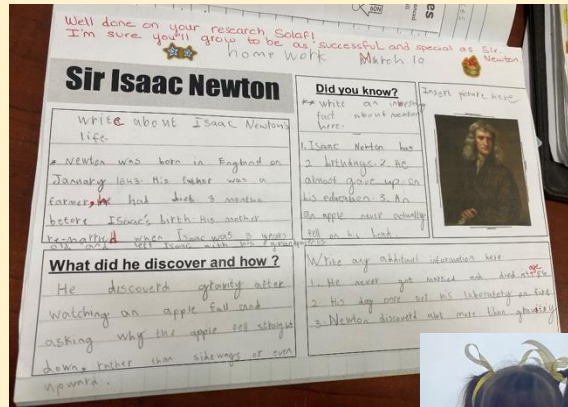 Well done on your research, Solaf!
I'm sure you'll grow to be as successful and special as Sir.
Newton
home work March 10
Sir Isaac Newton
write about Isaac Newton's
life.
* Newton was born in England on
January 1643. His father was a
farmer, had died 3 months
before Isaac's birth. His mother
re-married when Isaac was 3 years
old and left Isaac with his grandparents
Did you know?
** write an
fact about newton
here.
1. Isaac Newton has
2 birthdays. 2. He
almost gave up on
his education. 3. An
an apple never actually
fell on his head.
Insert picture here
What did he discover and how ?
He discoverd gravity after
watching an apple fall and
asking why the apple fell straight
down, rather than sideways or even
upward.
Write any additional information here
1. He never got married and died
age
2. His dog once set his laboratory on fire
3. Newton discoverd alot more than gravity